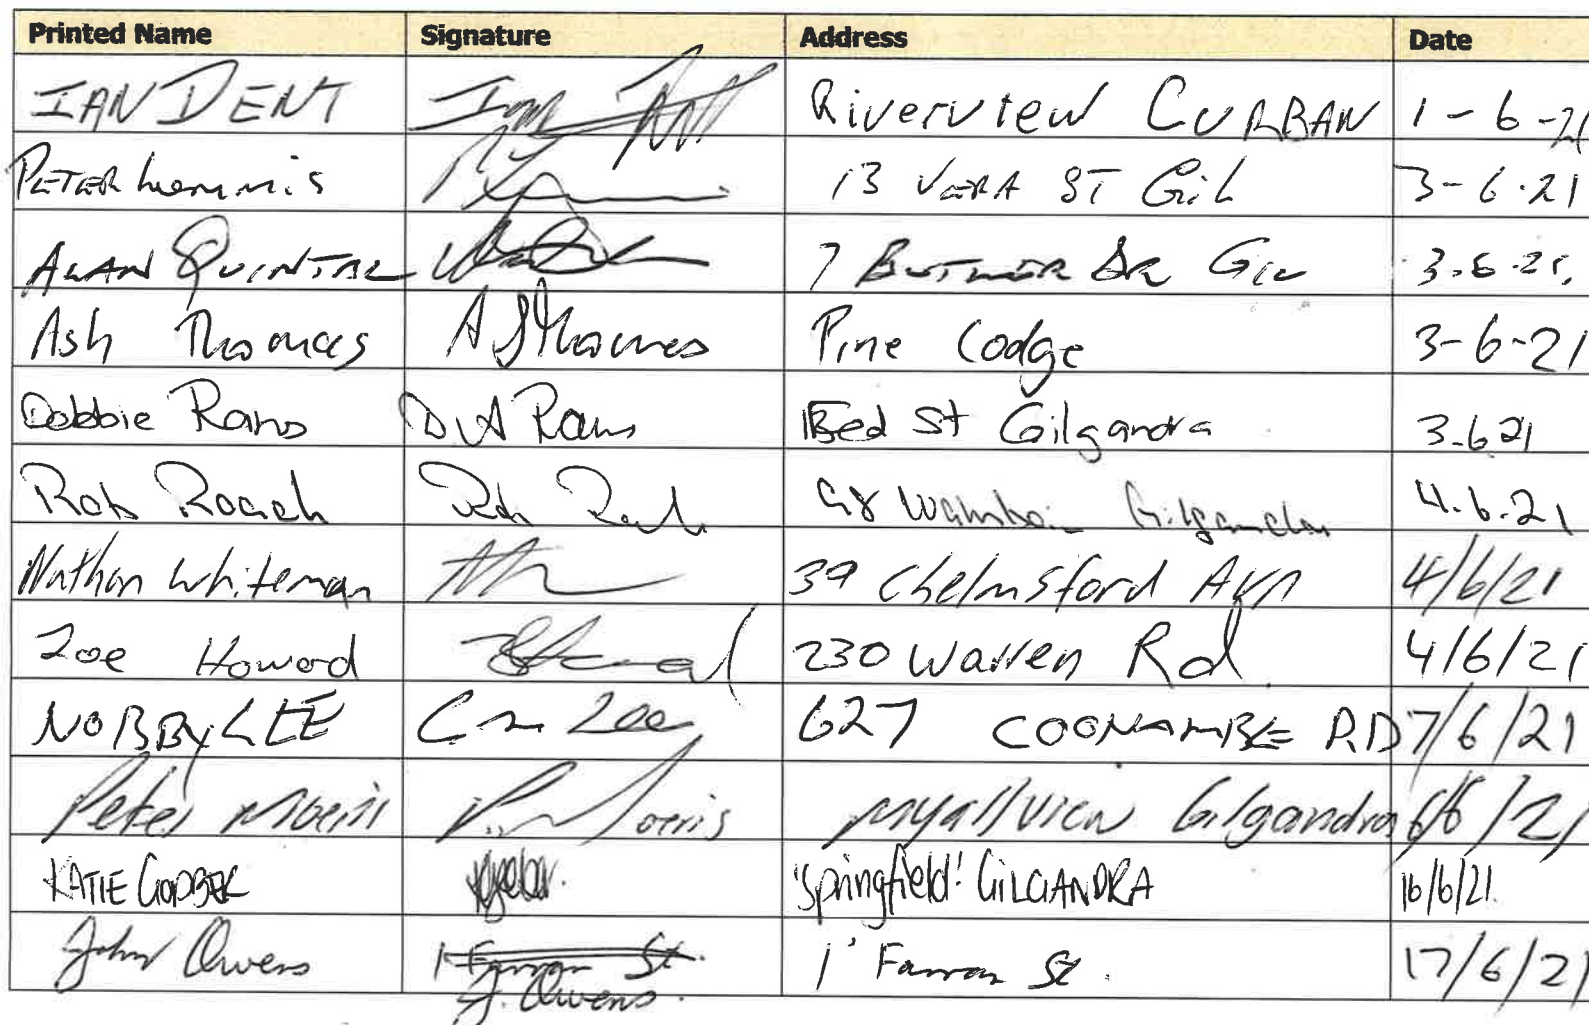 Printed Name Signature Address Date
IAN DENT Ian Riverview CURBAN 1-6-21
PETER 13 VERA ST Gil 3-6-21
ALAN QUINTAL 7 DR Gil 3.6.21.
Ash Thomas A J Thomas Pine Lodge 3-6-21
Debbie Rans D A Rans St Gilgandra 3.6.21
Rob Roach Rob Roach Gilgandra 4.6.21
Nathan Whiteman 39 Chelmsford Ave 4/6/21
Zoe Howard 230 Warren Rd 4/6/21
NOBBY LEE Lee 627 COONAMBLE RD 7/6/21
Peter Morris P. Morris Myallview Gilgandra
KATIE 'Springfield' GILGANDRA 16/6/21.
John Owens 1 St. 1 St. 17/6/21
J. Owens.